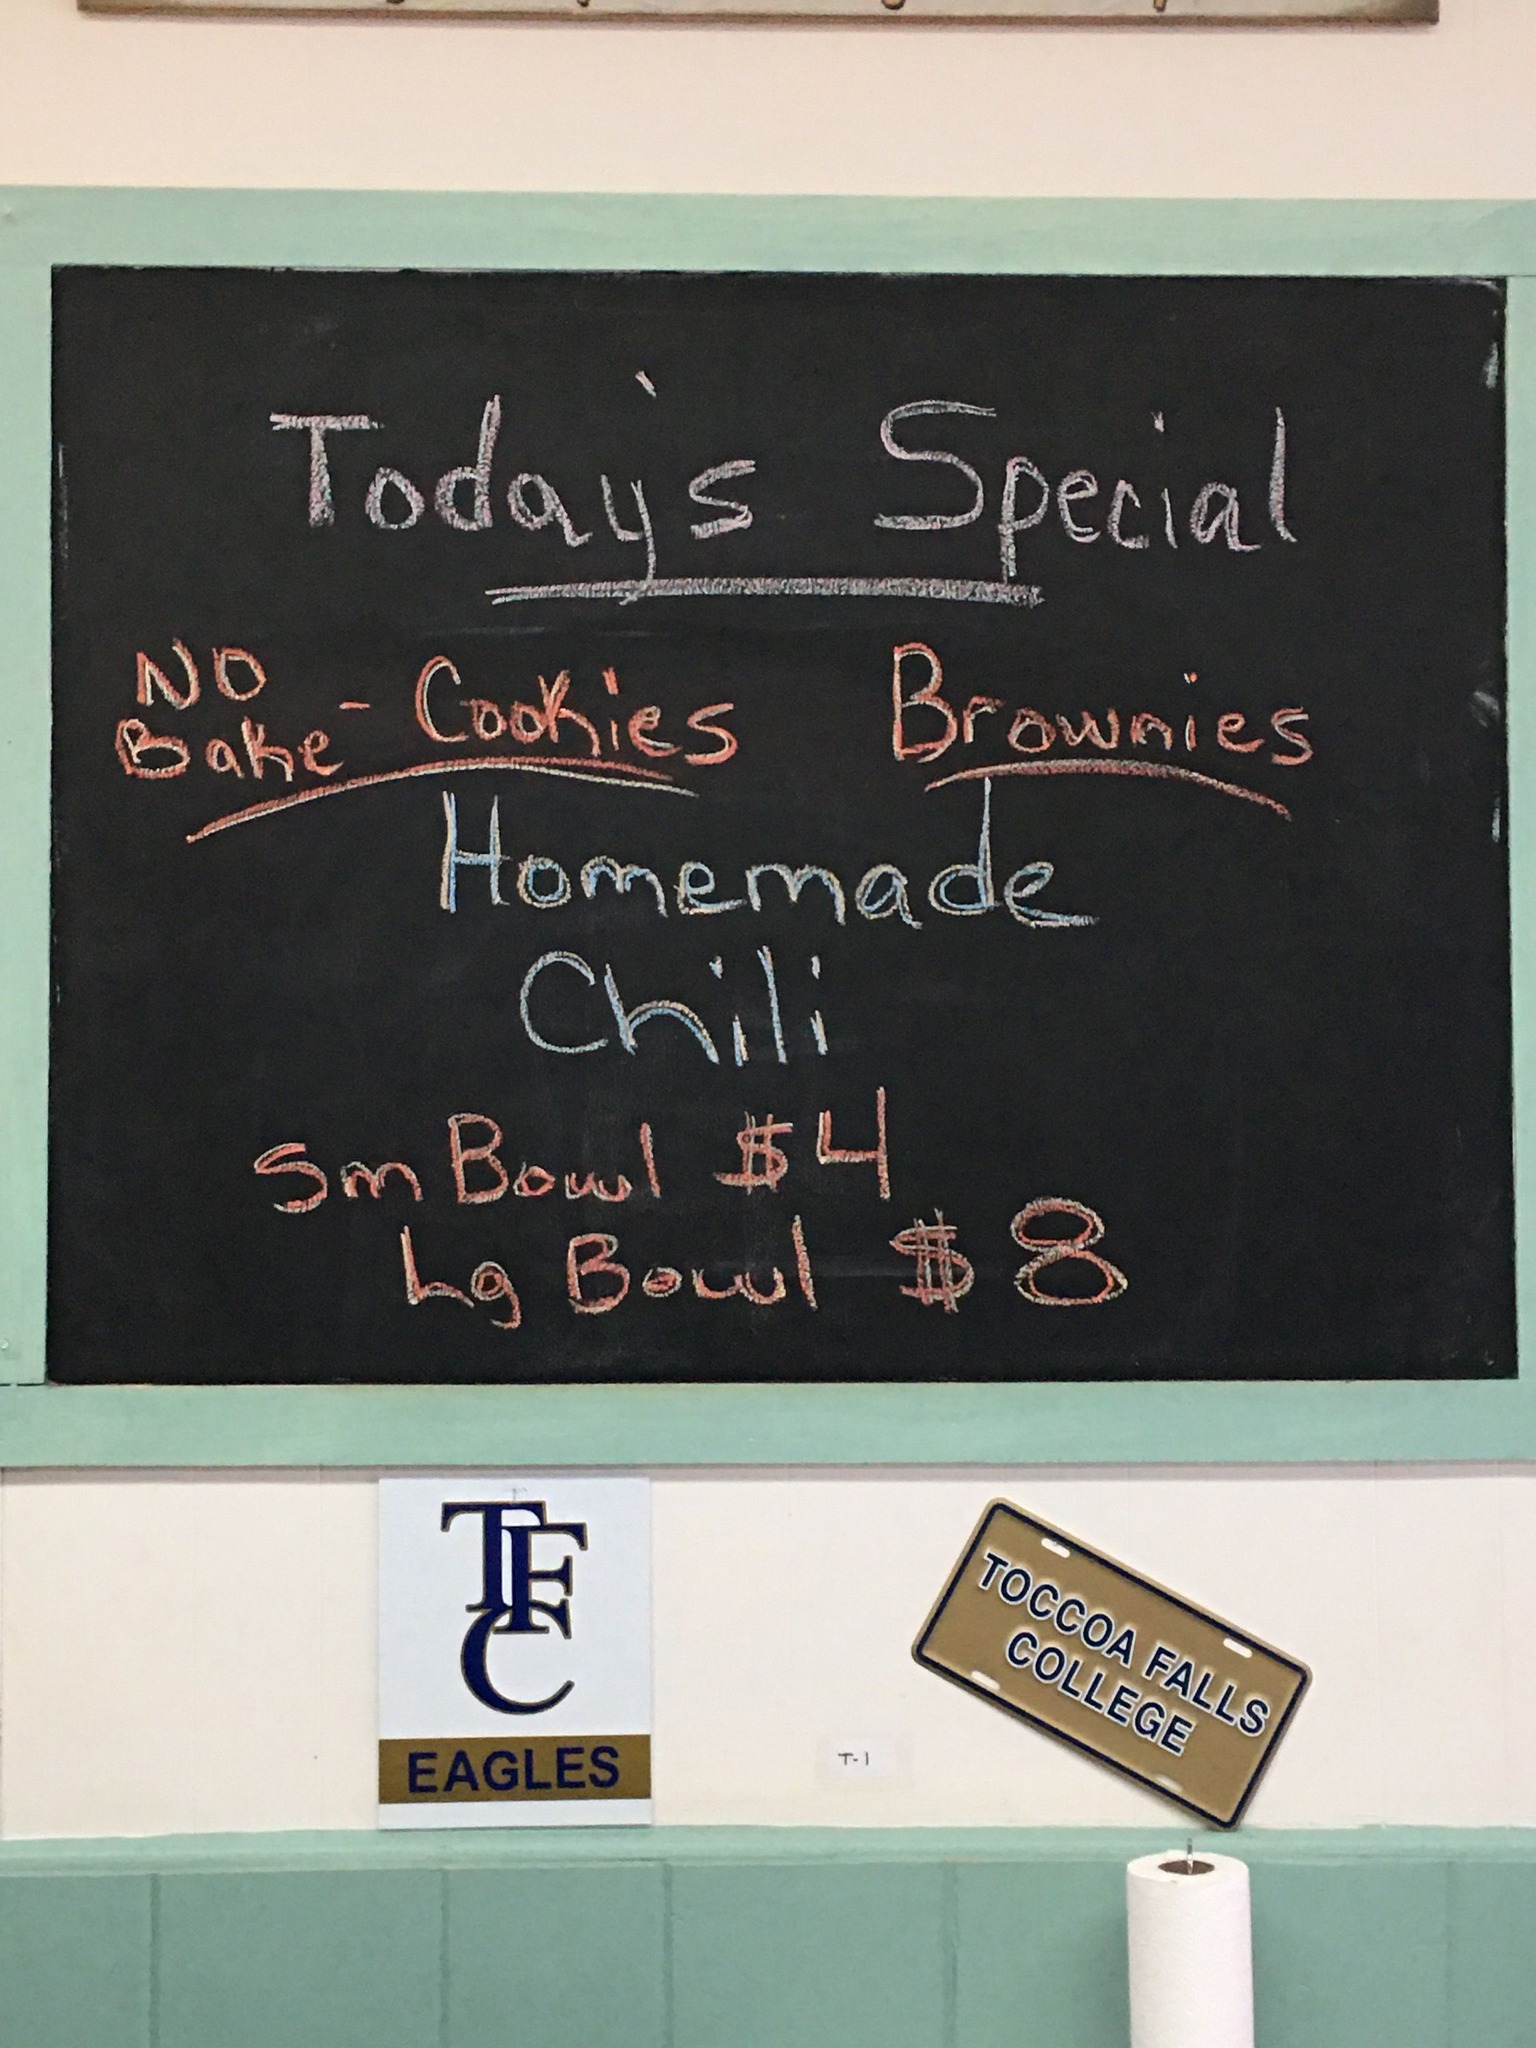 Today's Special
NO
Bake - Cookies Brownies
Homemade
Chili
Sm Bowl $4
Lg Bowl $8
TFC
EAGLES
TOCCOA FALLS
COLLEGE
T-1